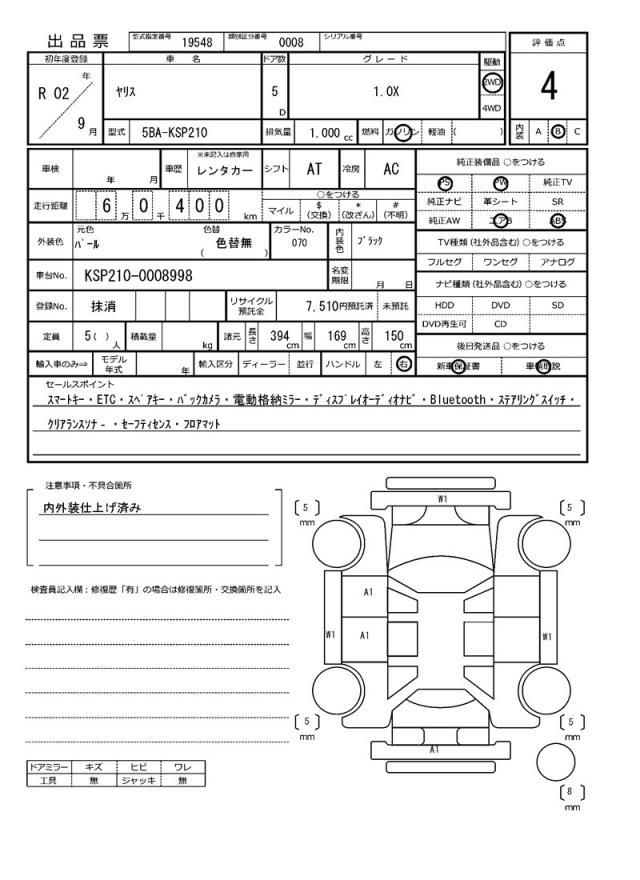 出品票
型式指定番号 19548 類別区分番号 0008 シリアル番号
初年度登録 車名 ドア数 グレード 駆動 評価点
R 02 年 9 月 ヤリス 5 D 1.0X 2WD 4WD 4
型式 5BA-KSP210 排気量 1.000 cc 燃料 ガソリン 軽油 ( ) 内装 A B C
車検 年 月 車歴 ※未記入は自家用 レンタカー シフト AT 冷房 AC
走行距離 6 万 0 千 4 0 0 km
○をつける
マイル $(交換) *(改ざん) #(不明)
外装色 元色 パール 色替 色替無 ( ) カラーNo. 070 内装色 ブラック
車台No. KSP210-0008998 名変期限 月 日
登録No. 抹消 リサイクル預託金 7,510円預託済 未預託
定員 5( ) 人 積載量 kg 諸元 長さ 394 cm 幅 169 cm 高さ 150 cm
輸入車のみ⇒ モデル年式 年 輸入区分 ディーラー 並行 ハンドル 左 右
純正装備品 ○をつける
PS PW 純正TV
純正ナビ 革シート SR
純正AW エアB ABS
TV種類(社外品含む)○をつける
フルセグ ワンセグ アナログ
ナビ種類(社外品含む)○をつける
HDD DVD SD
DVD再生可 CD
後日発送品 ○をつける
新車保証書 車輌取説
セールスポイント
スマートキー・ETC・スペアキー・バックカメラ・電動格納ミラー・ディスプレイオーディオナビ・Bluetooth・ステアリングスイッチ・
クリアランスソナー・セーフティセンス・フロアマット
注意事項・不具合箇所
内外装仕上げ済み
検査員記入欄:修復歴「有」の場合は修復箇所・交換箇所を記入
ドアミラー キズ ヒビ ワレ
工具 無 ジャッキ 無
W1
5 mm
5 mm
A1
W1 A1 W1
5 mm
5 mm
A1
8 mm